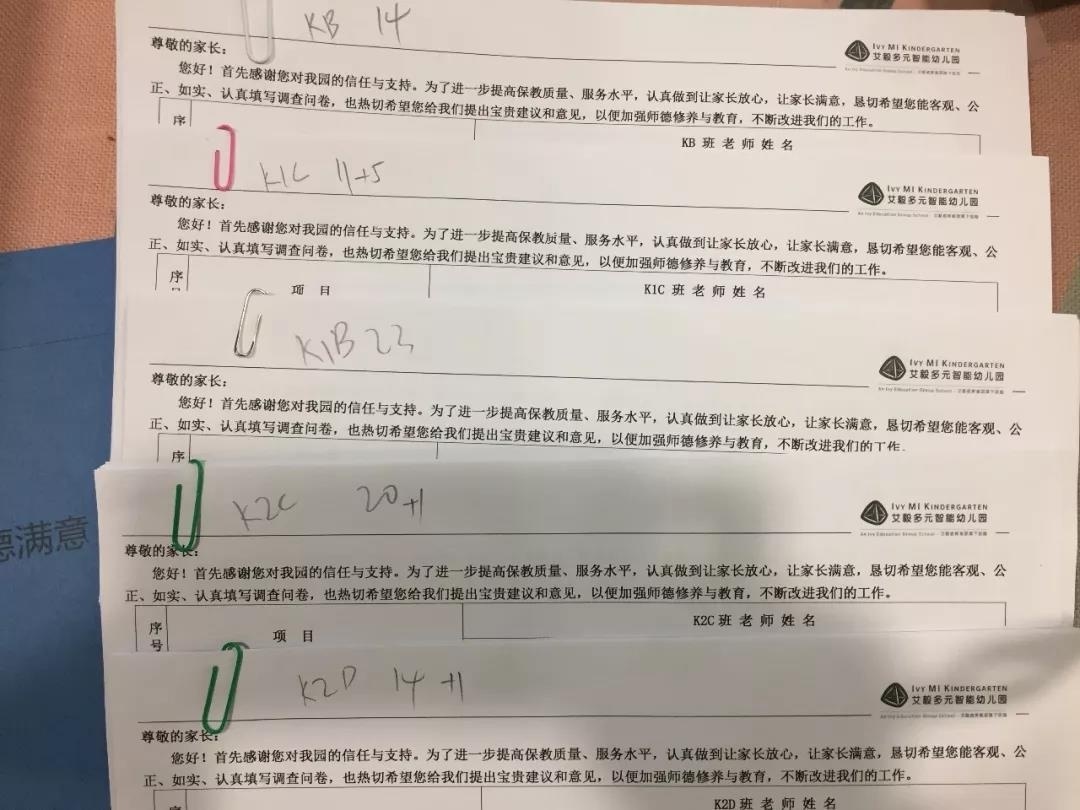 KB 14
IVY MI KINDERGARTEN
艾毅多元智能幼儿园
尊敬的家长：
您好！首先感谢您对我园的信任与支持。为了进一步提高保教质量、服务水平，认真做到让家长放心，让家长满意，恳切希望您能客观、公
正、如实、认真填写调查问卷，也热切希望您给我们提出宝贵建议和意见，以便加强师德修养与教育，不断改进我们的工作。
序
KB 班 老 师 姓 名
K1C 11+5
IVY MI KINDERGARTEN
艾毅多元智能幼儿园
An Ivy Education Group School · 艾毅教育集团旗下校园
尊敬的家长：
您好！首先感谢您对我园的信任与支持。为了进一步提高保教质量、服务水平，认真做到让家长放心，让家长满意，恳切希望您能客观、公
正、如实、认真填写调查问卷，也热切希望您给我们提出宝贵建议和意见，以便加强师德修养与教育，不断改进我们的工作。
序 项 目 K1C 班 老 师 姓 名
K1B 23
IVY MI KINDERGARTEN
艾毅多元智能幼儿园
An Ivy Education Group School
尊敬的家长：
您好！首先感谢您对我园的信任与支持。为了进一步提高保教质量、服务水平，认真做到让家长放心，让家长满意，恳切希望您能客观、公
正、如实、认真填写调查问卷，也热切希望您给我们提出宝贵建议和意见，以便加强师德修养与教育，不断改进我们的工作.
序
K2C 20+1
IVY MI KINDERGARTEN
艾毅多元智能幼儿园
An Ivy Education Group School
德满意
尊敬的家长：
您好！首先感谢您对我园的信任与支持。为了进一步提高保教质量、服务水平，认真做到让家长放心，让家长满意，恳切希望您能客观、公
正、如实、认真填写调查问卷，也热切希望您给我们提出宝贵建议和意见，以便加强师德修养与教育，不断改进我们的工作。
序
号 项 目 K2C 班 老 师 姓 名
K2D 14+1
IVY MI KINDERGARTEN
艾毅多元智能幼儿园
An Ivy Education Group School
尊敬的家长：
您好！首先感谢您对我园的信任与支持。为了进一步提高保教质量、服务水平，认真做到让家长放心，让家长满意，恳切希望您能客观、公
正、如实、认真填写调查问卷，也热切希望您给我们提出宝贵建议和意见，以便加强师德修养与教育，不断改进我们的工作。
序 K2D 班 老 师 姓 名